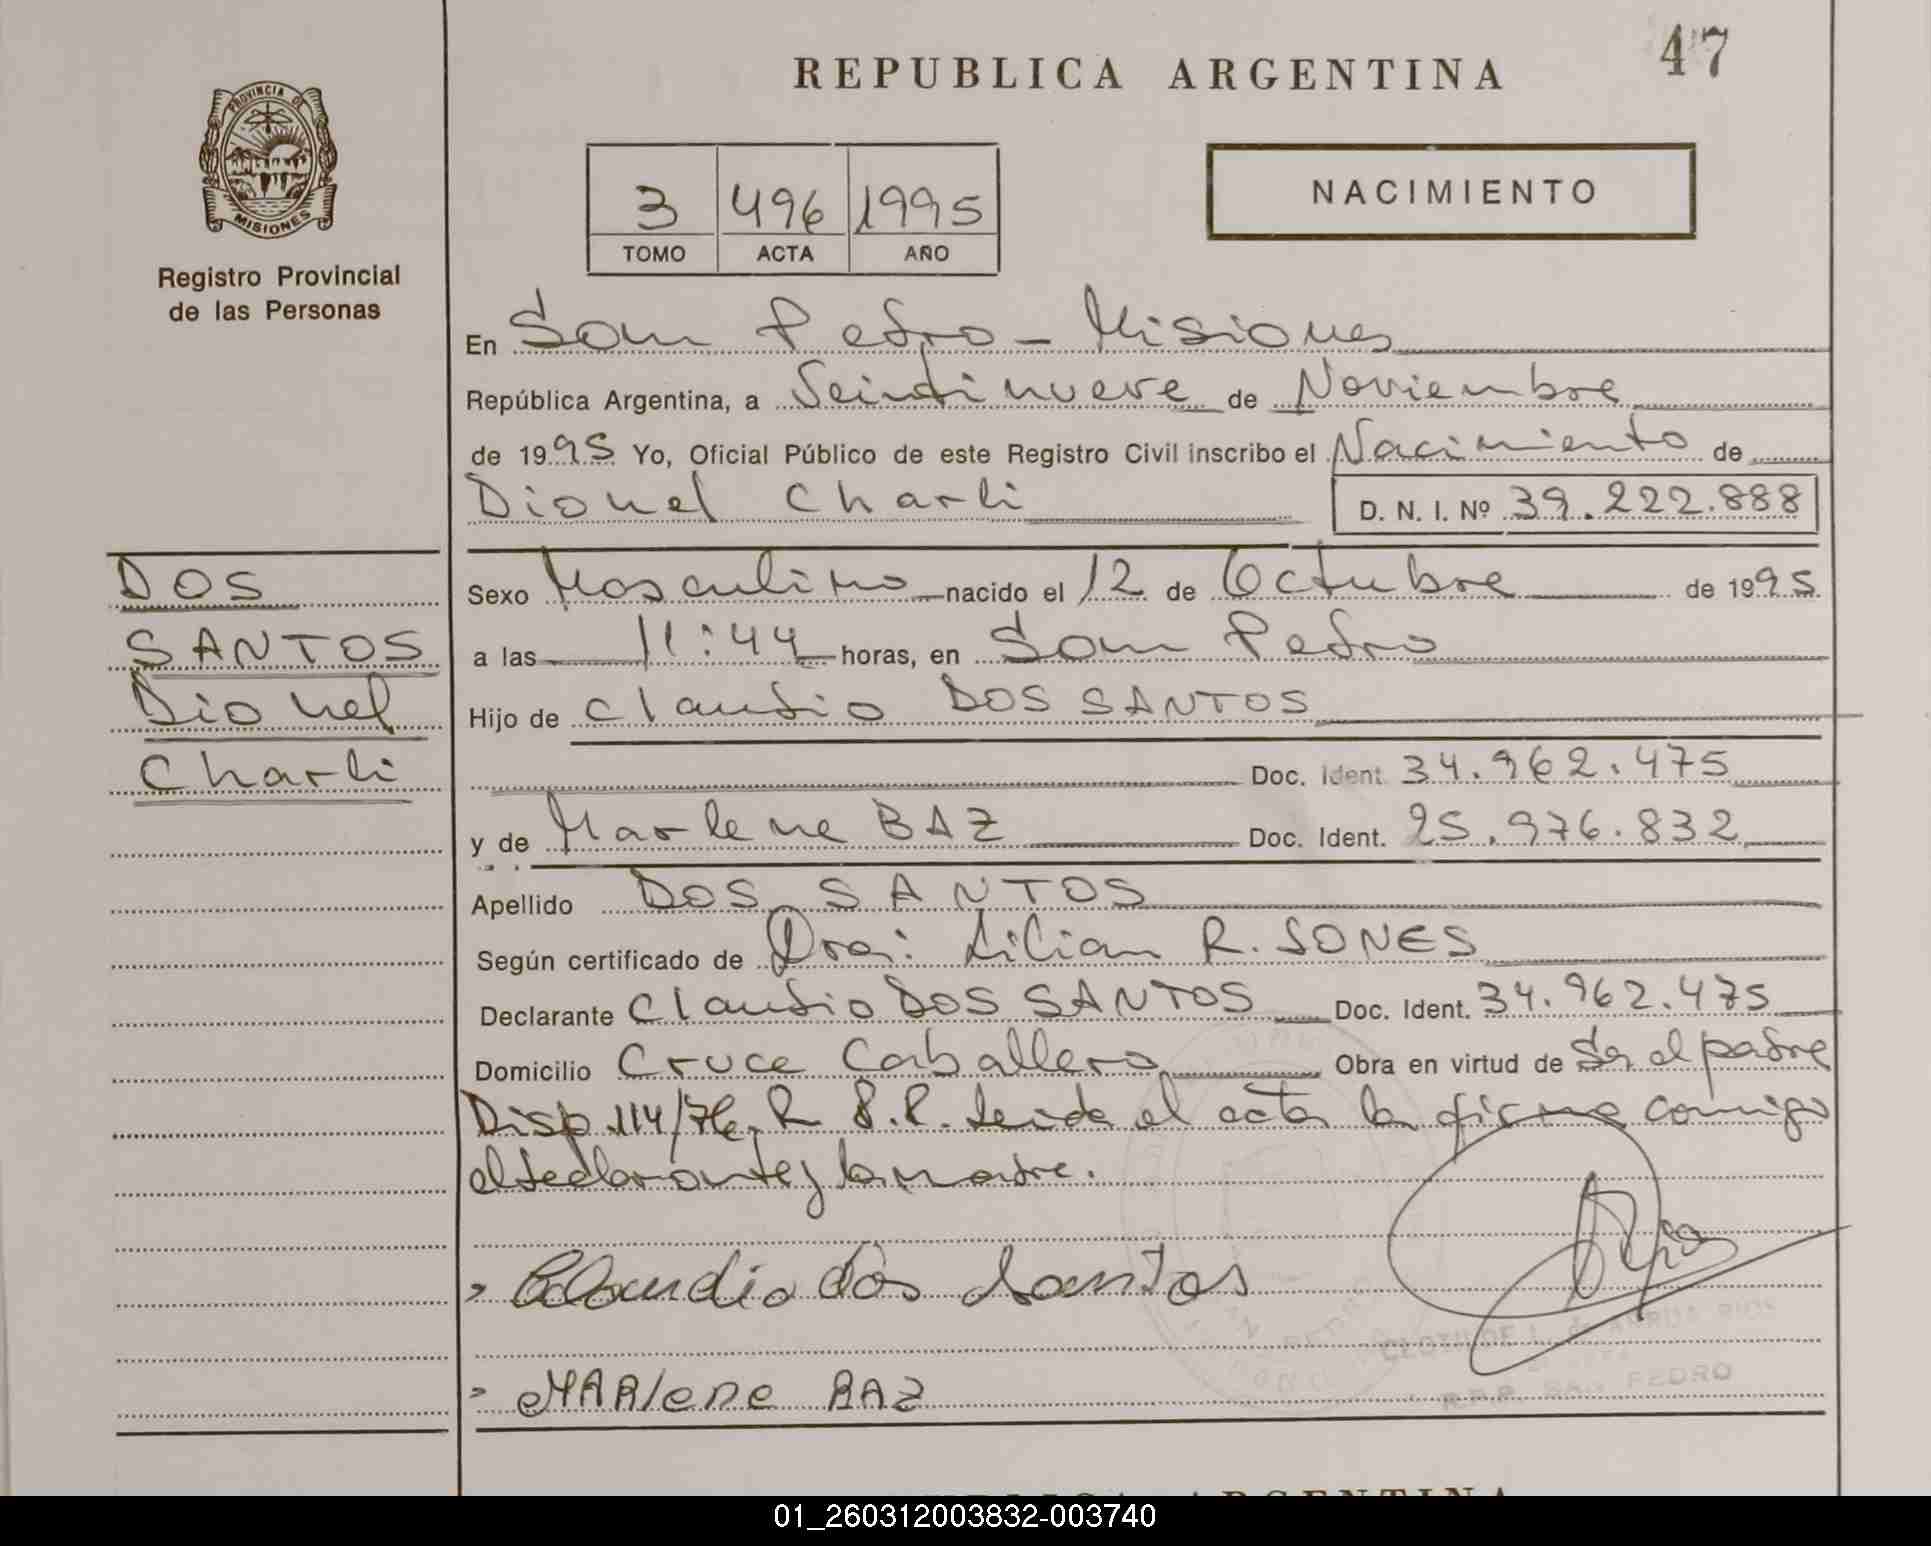 47
REPUBLICA ARGENTINA
PROVINCIA DE
MISIONES
Registro Provincial
de las Personas
3 496 1995
TOMO ACTA AÑO
NACIMIENTO
En San Pedro - Misiones
República Argentina, a Veintinueve de Noviembre
de 1995 Yo, Oficial Público de este Registro Civil inscribo el Nacimiento de
Dionel Charli D. N. I. Nº 39.222.888
DOS
SANTOS
Dionel
Charli
Sexo Masculino nacido el 12 de Octubre de 1995
a las 11:44 horas, en San Pedro
Hijo de Claudio DOS SANTOS
Doc. Ident. 34.962.475
y de Marlene BAZ Doc. Ident. 25.976.832
Apellido DOS SANTOS
Según certificado de Dra: Lilian R. SONES
Declarante Claudio DOS SANTOS Doc. Ident. 34.962.475
Domicilio Cruce Caballero Obra en virtud de Ser el padre
Disp. 114/76. R.P.P. Leida el acta la firma conmigo
el declarante y la madre.
Claudio dos Santos
MARlene BAZ
R.P.P. SAN PEDRO
REPUBLICA ARGENTINA
01_260312003832-003740